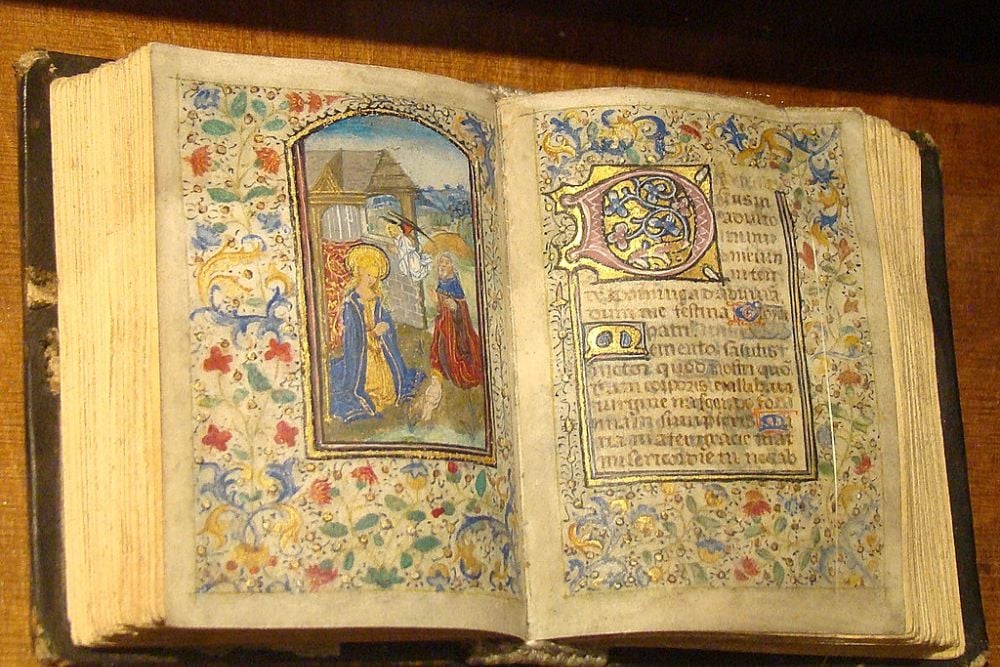 Deus in
adiuto
rium
meum
inten
de Domine ad adiuua
dum me festina Glori
patri
Memento salutis
auctor quod nostri quo
dam corporis ex illibata
uirgine nascendo for
mam sumpseris Ma
ria mater gracie mat
misericordie tu nos ab